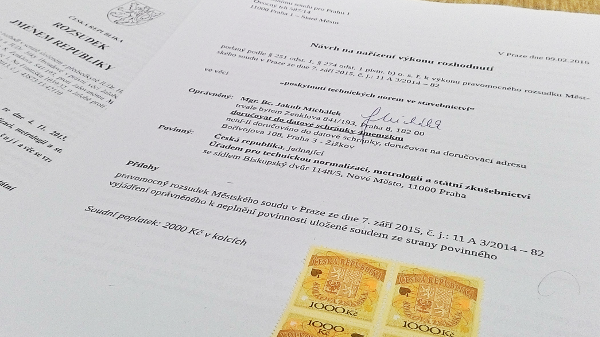 ČESKÁ REPUBLIKA
ROZSUDEK
JMÉNEM REPUBLIKY
soudu pro Prahu 1
11000 Praha 1 – Staré Město
V Praze dne 09.02.2016
Návrh na nařízení výkonu rozhodnutí
podaný podle § 251 odst. 1, § 274 odst. 1 písm. b) o. s. ř. k výkonu pravomocného rozsudku Měst-
ského soudu v Praze ze dne 7. září 2015, č. j.: 11 A 3/2014 – 82
ve věci
„poskytnutí technických norem ve stavebnictví“
Oprávněný: Mgr. Bc. Jakub Michálek
trvale bytem Zenklova 841/193, Praha 8, 182 00
doručovat do datové schránky 4memzkm
není-li doručováno do datové schránky, doručovat na doručovací adresu
Bořivojova 108, Praha 3 - Žižkov
Povinný: Česká republika, jednající
Úřadem pro technickou normalizaci, metrologii a státní zkušebnictví
se sídlem Biskupský dvůr 1148/5, Nové Město, 11000 Praha
Přílohy
pravomocný rozsudek Městského soudu v Praze ze dne 7. září 2015, č. j.: 11 A 3/2014 – 82
vyjádření oprávněného k neplnění povinnosti uložené soudem ze strany povinného
Soudní poplatek: 2000 Kč v kolcích
ČESKÁ REPUBLIKA
KOLKOVÁ ZNÁMKA
1000 Kč
ČESKÁ REPUBLIKA
KOLKOVÁ ZNÁMKA
1000 Kč
1000
Kč